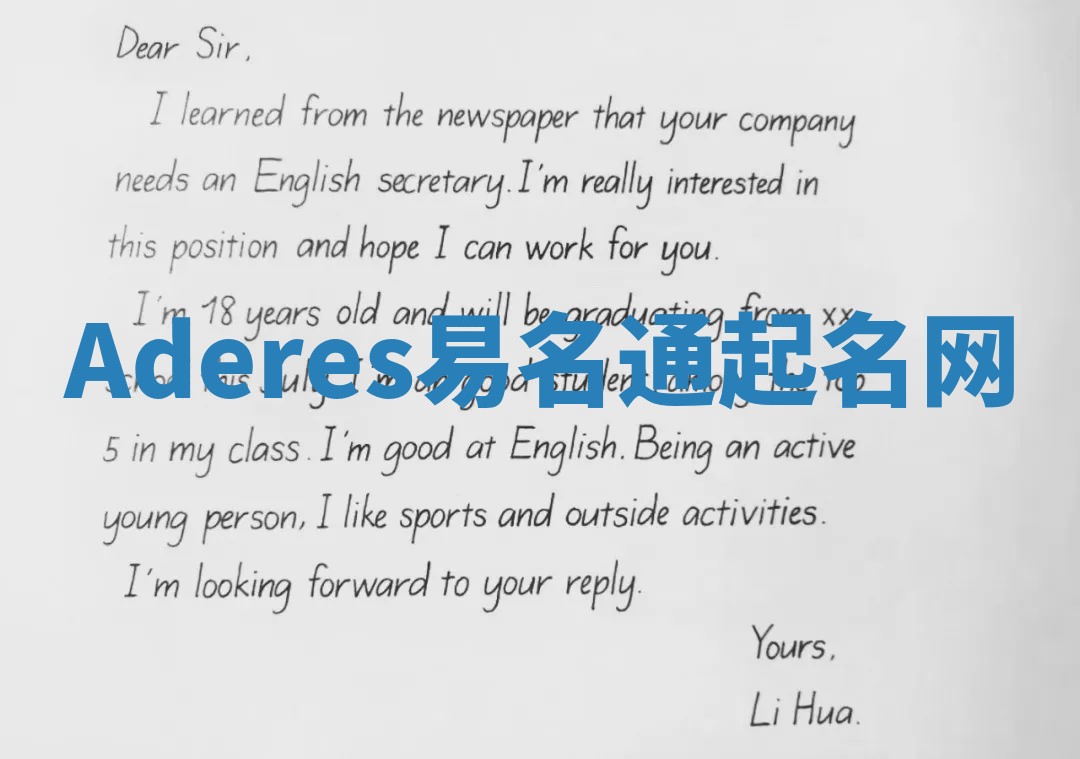 Dear Sir,
I learned from the newspaper that your company
needs an English secretary. I'm really interested in
this position and hope I can work for you.
I'm 18 years old and will be graduating from xx
Aderes易名通起名网
school this July. I'm an good student, among the top
5 in my class. I'm good at English. Being an active
young person, I like sports and outside activities.
I'm looking forward to your reply.
Yours,
Li Hua.